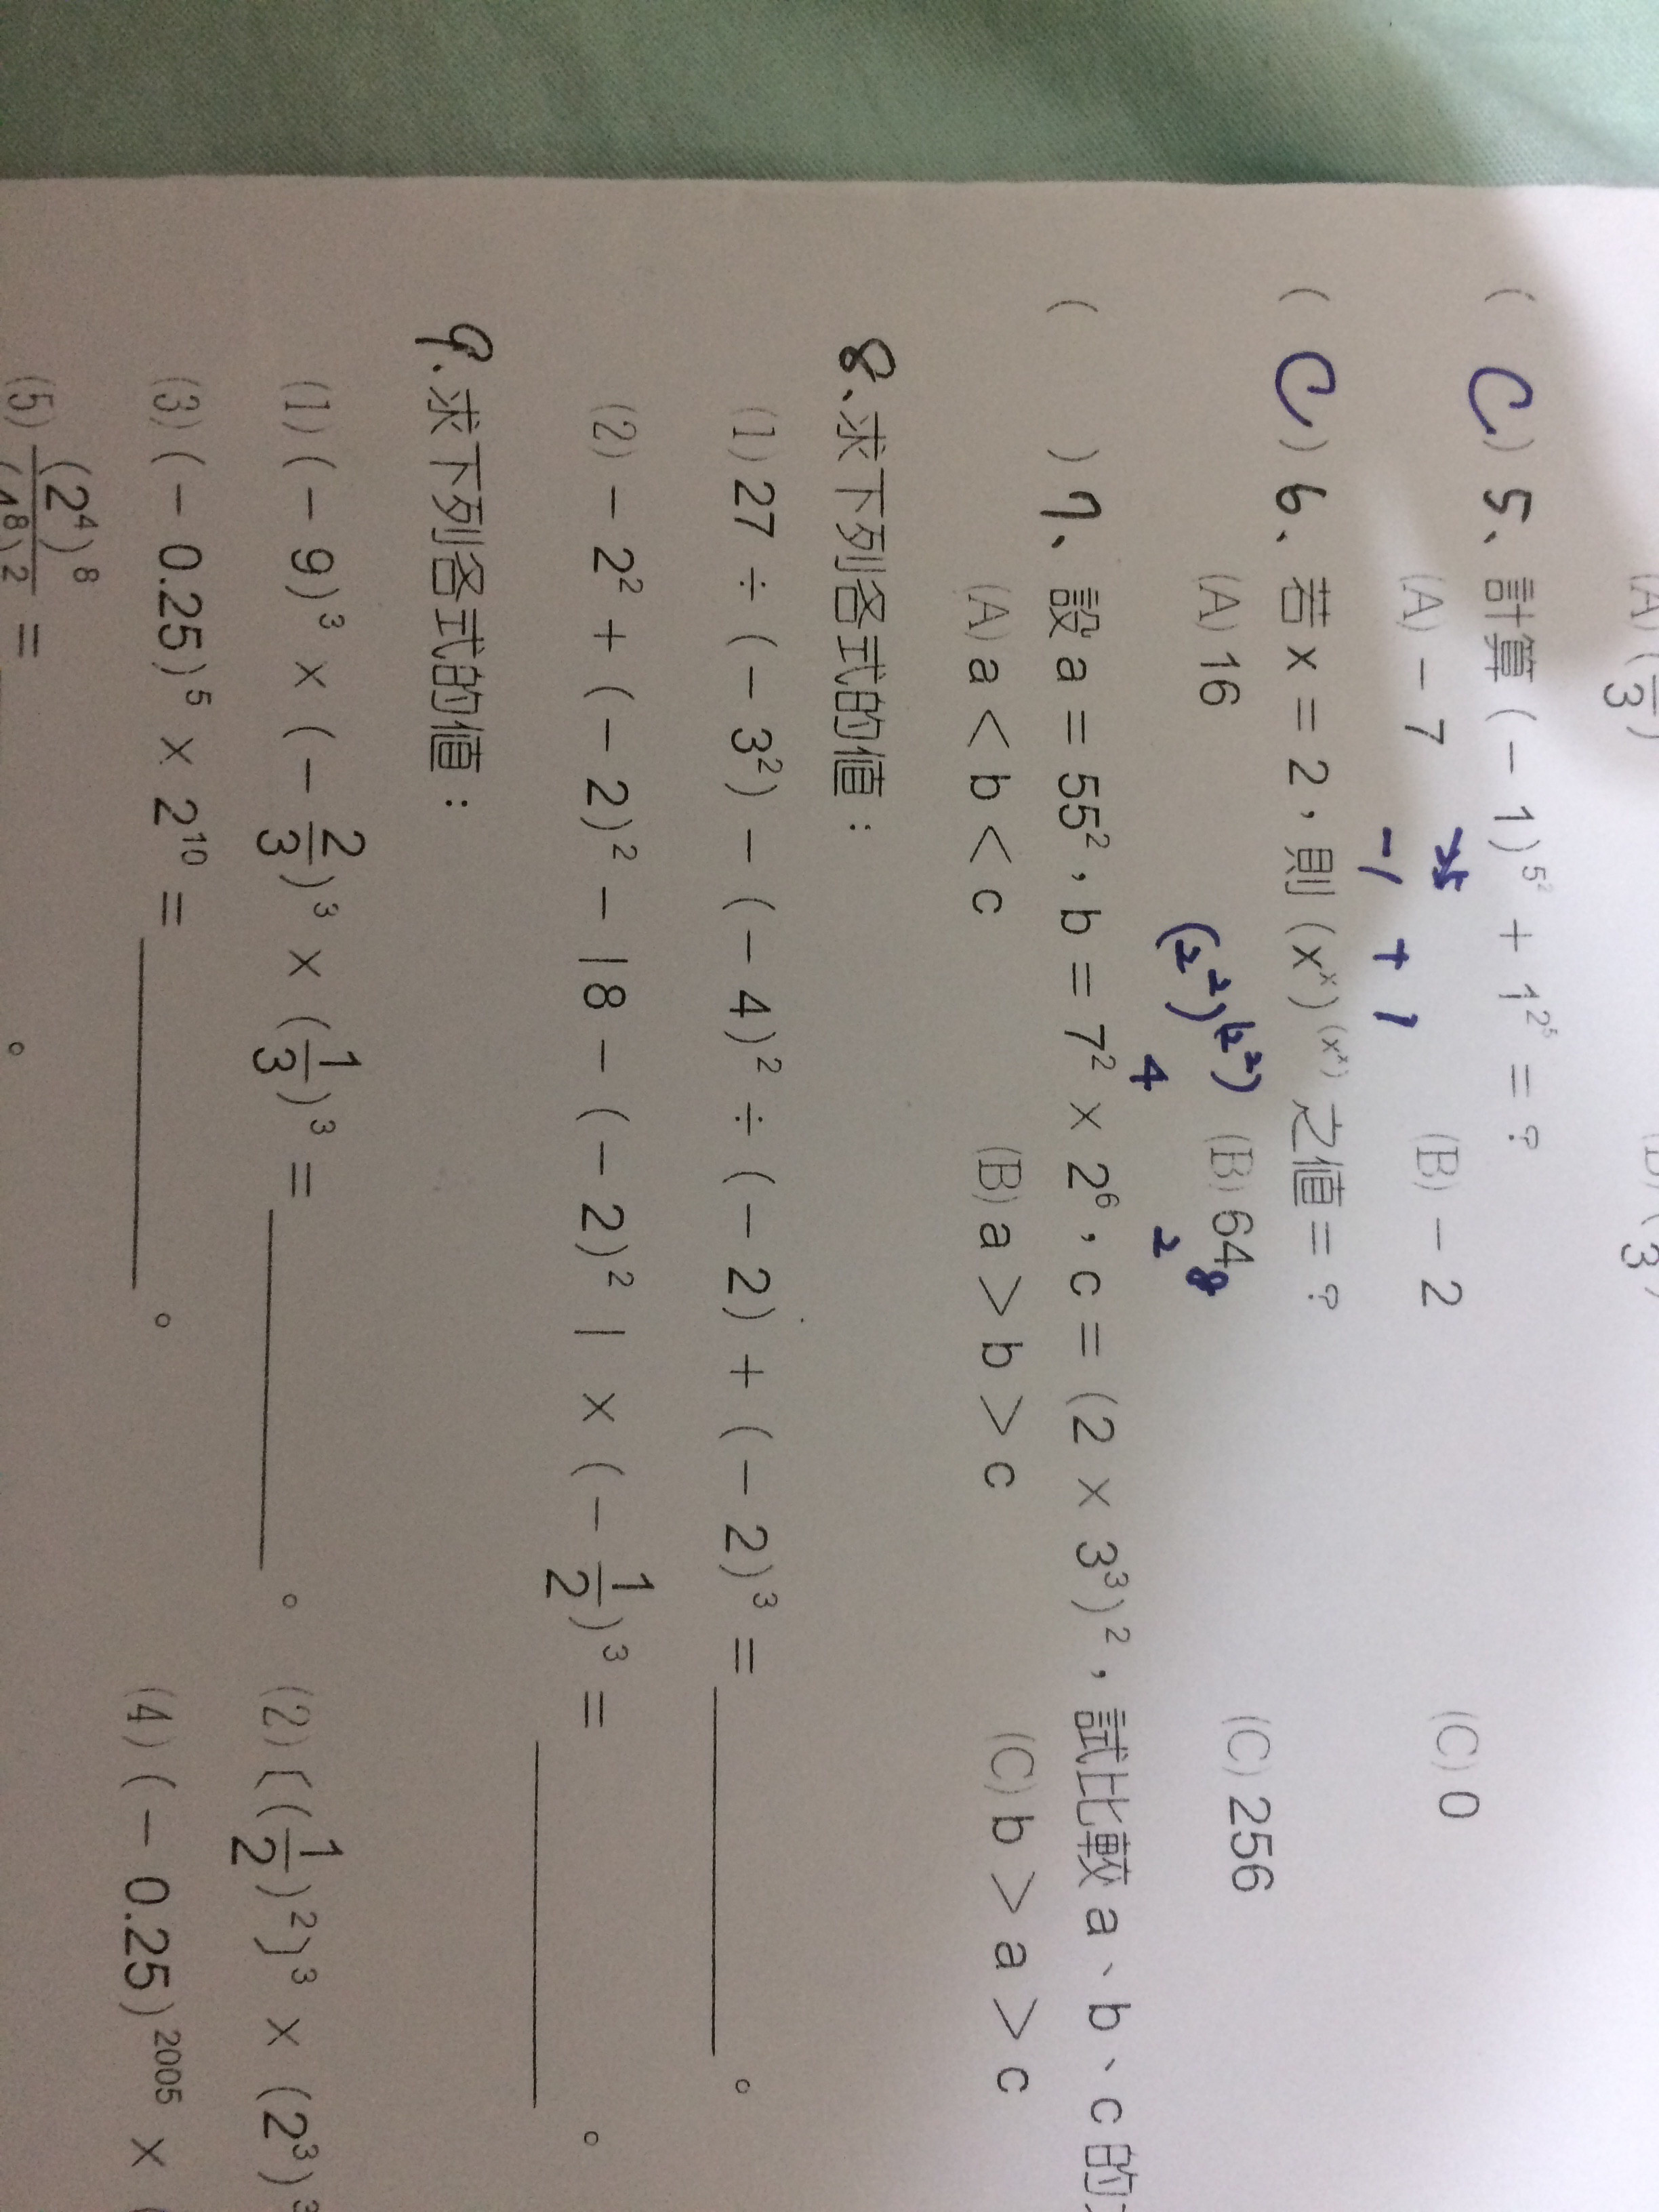 (A)(
3)
( C ) 5、計算(－1)^5^2 + 1^2^5 = ？
(A)－7 (B)－2 (C)0
－1 + 1
( C ) 6、若x = 2，則(x^x)^(x^x)之值 = ？
(A)16 (B)64 (C)256
(2^2)^(2^2)
4 2^8
( ) 7、設a = 55^2，b = 7^2 × 2^6，c = (2 × 3^3)^2，試比較a、b、c的
(A)a < b < c (B)a > b > c (C)b > a > c
8、求下列各式的值：
(1)27 ÷ (－3^2)－(－4)^2 ÷ (－2) + (－2)^3 = ＿＿＿＿。
(2)－2^2 + (－2)^2－|8－(－2)^2| × (－1/2)^3 = ＿＿＿＿。
9.求下列各式的值：
(1)(－9)^3 × (－2/3)^3 × (1/3)^3 = ＿＿＿＿。 (2)〔(1/2)^2〕^3 × (2^3)^3
(3)(－0.25)^5 × 2^10 = ＿＿＿＿。 (4)(－0.25)^2005 × (
(5)(2^4)^8/(4^8)^2 = ＿＿＿＿。